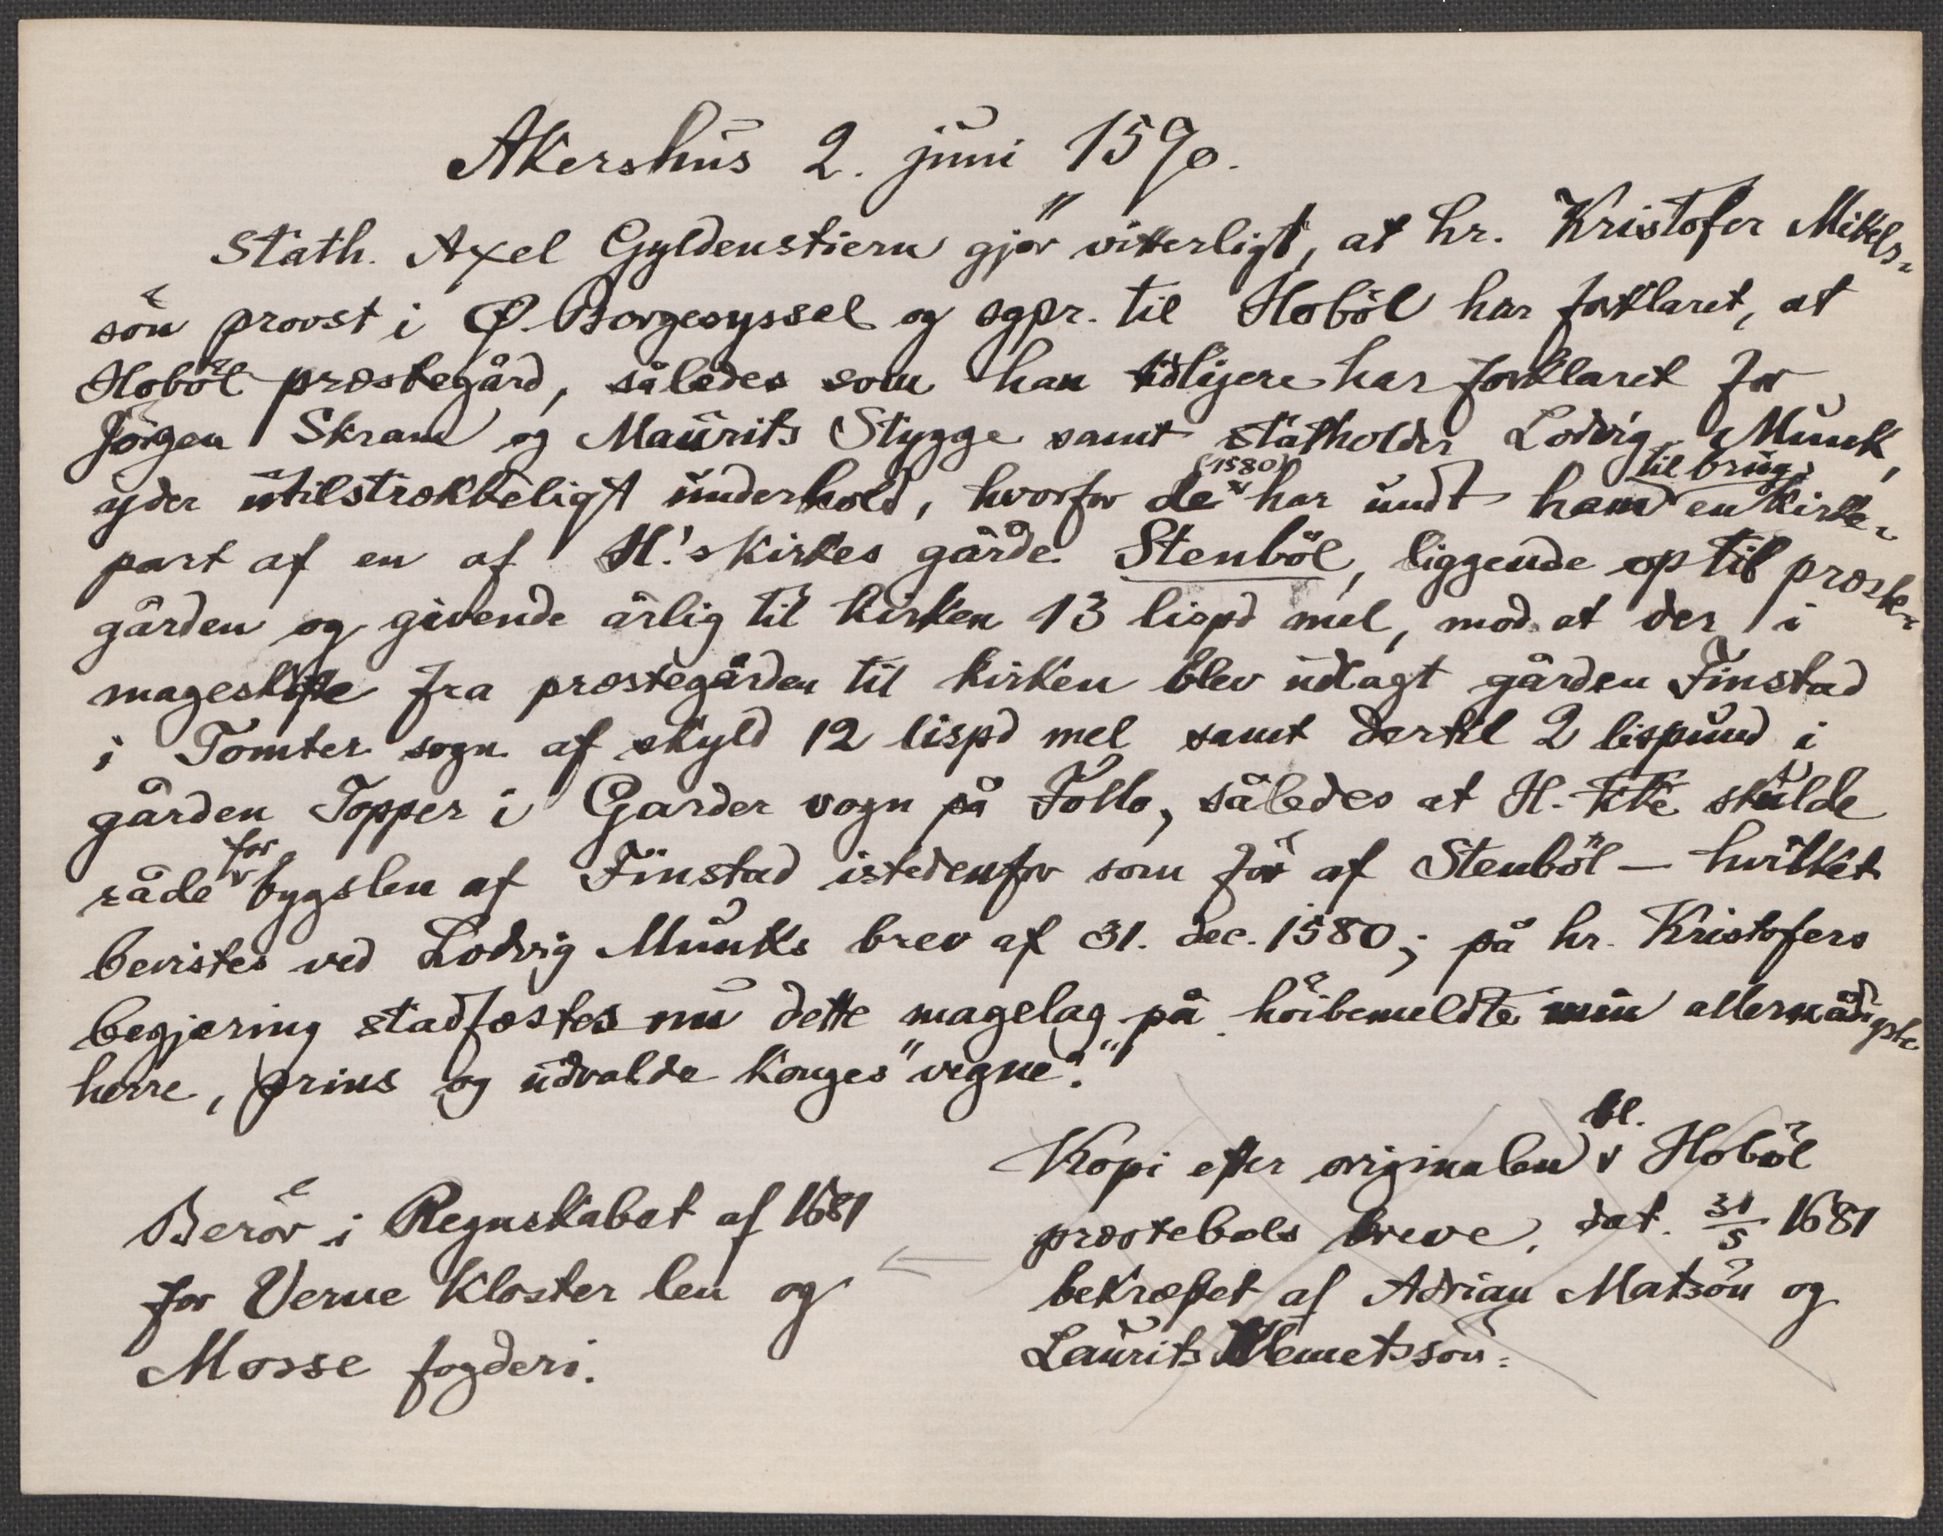 Akershus 2. juni 1590.
Stath. Axel Gyldenstiern gjör "vitterligt, at hr. Kristofer Mikels-
sön provst i Ø. Borgesyssel og sgpr. til Hoböl har forklaret, at
Hoböl præstegård, således som han tidligere har forklaret for
Jörgen Skram og Maurits Stygge samt statholder Lodvig Munk,
yder utilstrækkeligt underhold, hvorfor de (1580) har undt ham til brug en kirke-
part af en af H.'s kirkes gårde Stenböl, liggende op til præste-
gården og givende årlig til kirken 13 lispd mel, mod at der i
mageskifte fra præstegården til kirken blev udlagt gården Finstad
i Tomter sogn af skyld 12 lispd mel samt dertil 2 lispund i
gården Topper i Garder sogn på Follo, således at H. kke skulde
råde for bygslen af Finstad istedenfor som för af Stenböl – hvilket
bevistes ved Lodvig Munks brev af 31. dec. 1580; på hr. Kristofers
begjæring stadfæstes nu dette magelag på höibemeldte min allernådigste
herre, prins og udvalde konges "vegne".
Kopi efter originalen bl. Hoböl
præstebols breve, dat. 31/5 1681
bekræftet af Adrian Matsön og
Laurits Klemetssön.
Beror i Regnskabet af 1681
for Verne Kloster len og
Mosse fogderi.